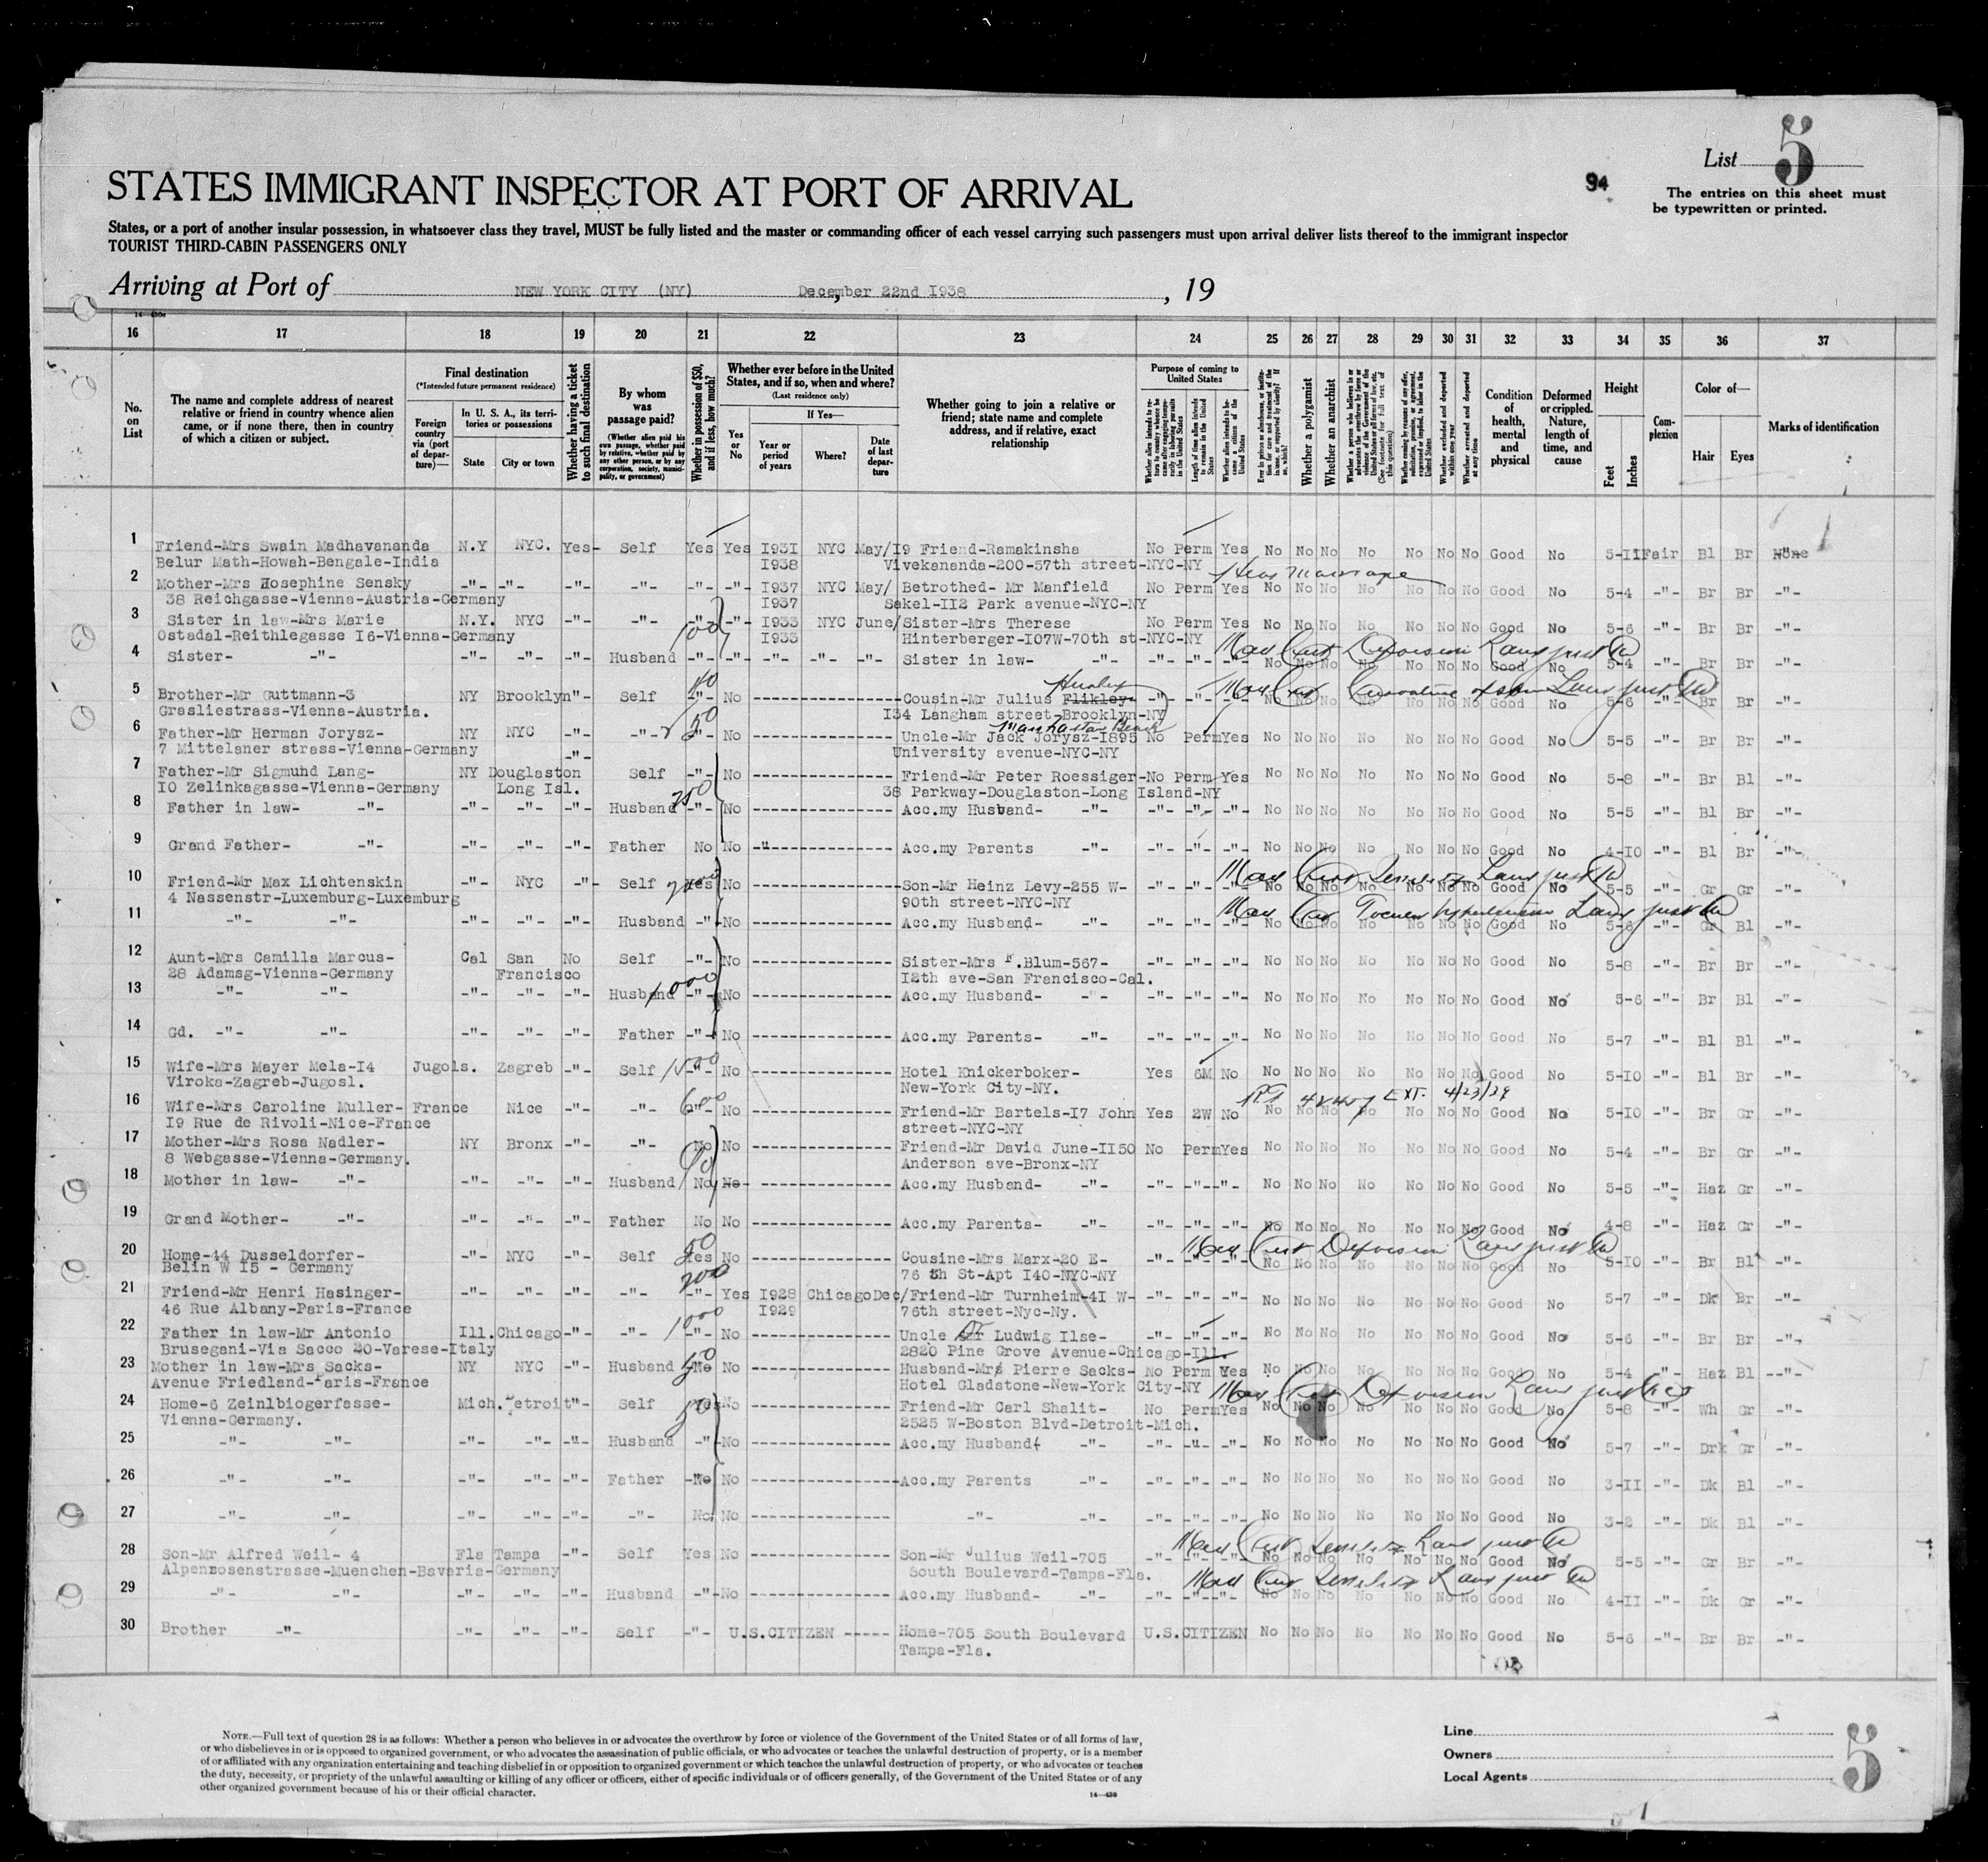 List 5
94
The entries on this sheet must
be typewritten or printed.
STATES IMMIGRANT INSPECTOR AT PORT OF ARRIVAL
States, or a port of another insular possession, in whatsoever class they travel, MUST be fully listed and the master or commanding officer of each vessel carrying such passengers must upon arrival deliver lists thereof to the immigrant inspector
TOURIST THIRD-CABIN PASSENGERS ONLY
Arriving at Port of NEW YORK CITY (NY) December 22nd 1938, 19
16 17 18 19 20 21 22 23 24 25 26 27 28 29 30 31 32 33 34 35 36 37
No. on List
The name and complete address of nearest relative or friend in country whence alien came, or if none there, then in country of which a citizen or subject.
Final destination
(*Intended future permanent residence)
Foreign country via (port of departure)—
In U. S. A., its territories or possessions
State
City or town
Whether having a ticket to such final destination
By whom was passage paid?
(Whether alien paid his own passage, whether paid by relative, whether paid by any other person, or by any corporation, society, municipality, or government)
Whether in possession of $50, and if less, how much?
Whether ever before in the United States, and if so, when and where?
(Last residence only)
If Yes—
Yes or No
Year or period of years
Where?
Date of last departure
Whether going to join a relative or friend; state name and complete address, and if relative, exact relationship
Purpose of coming to United States
Length of time alien intends to remain in the United States
Whether alien intends to become a citizen of the United States
Whether a polygamist
Whether an anarchist
Whether excluded and deported within one year
Whether arrested and deported at any time
Condition of health, mental and physical
Deformed or crippled. Nature, length of time, and cause
Height
Feet
Inches
Complexion
Color of—
Hair
Eyes
Marks of identification
1 Friend-Mrs Swain Madhavananda N.Y NYC. Yes- Self Yes Yes I93I NYC May/I9 Friend-Ramakinsha No Perm Yes No No No No No No No Good No 5-II Fair Bl Br None
Belur Math-Howah-Bengale-India I938 Vivekananda-200-57th street-NYC-NY
2 Mother-Mrs Hosephine Sensky -"- -"- -"- -"- -"- -"- I937 NYC May/ Betrothed- Mr Manfield No Perm Yes No No No No No No No Good No 5-4 -"- Br Br -"-
38 Reichgasse-Vienna-Austria-Germany I937 Sakel-II2 Park avenue-NYC-NY
3 Sister in law-Mrs Marie N.Y. NYC -"- -"- -"- -"- I933 NYC June/ Sister-Mrs Therese No Perm Yes No No No No No No No Good No 5-6 -"- Br Br -"-
Ostadal-Reithlegasse I6-Vienna-Germany 100 I933 Hinterberger-I07W-70th st-NYC-NY
4 Sister- -"- -"- -"- -"- Husband -"- -"- -"- -"- -"- Sister in law- -"- -"- -"- -"- No No No No No No No Good No 5-4 -"- Br Br -"-
5 Brother-Mr Guttmann-3 NY Brooklyn"- Self 40 -"- No Cousin-Mr Julius Flikley- -"- -"- No No No No No No No Good No 5-6 -"- Br Br -"-
Grasliestrass-Vienna-Austria. I34 Langham street-Brooklyn-NY
Manhattan Beach
6 Father-Mr Herman Jorysz- NY NYC -"- -"- 50 -"- No Uncle-Mr Jack Jorysz-I895 No Perm Yes No No No No No No No Good No 5-5 -"- Br Br -"-
7 Mittelaner strass-Vienna-Germany -"- University avenue-NYC-NY
7 Father-Mr Sigmund Lang- NY Douglaston Self -"- No Friend-Mr Peter Roessiger-No Perm Yes No No No No No No No Good No 5-8 -"- Br Bl -"-
IO Zelinkagasse-Vienna-Germany Long Isl. 38 Parkway-Douglaston-Long Island-NY
8 Father in law- -"- -"- -"- -"- Husband 250 -"- No Acc.my Husband- -"- -"- -"- -"- No No No No No No No Good No 5-5 -"- Bl Br -"-
9 Grand Father- -"- -"- -"- -"- Father No No Acc.my Parents -"- -"- -"- -"- No No No No No No No Good No 4-IO -"- Bl Br -"-
10 Friend-Mr Max Lichtenskin -"- NYC -"- Self Yes No Son-Mr Heinz Levy-255 W- -"- -"- -"- No No No No No No No Good No 5-5 -"- Gr Gr -"-
4 Nassenstr-Luxemburg-Luxemburg 90th street-NYC-NY
11 -"- -"- -"- -"- -"- Husband -"- No Acc.my Husband- -"- -"- -"- -"- No No No No No No No Good No 5-6 -"- Gr Bl -"-
12 Aunt-Mrs Camilla Marcus- Cal San No Self -"- No Sister-Mrs F.Blum-567- -"- -"- -"- No No No No No No No Good No 5-8 -"- Br Br -"-
28 Adamsg-Vienna-Germany Francisco I2th ave-San Francisco-Cal.
13 -"- -"- -"- -"- -"- Husband 1000 -"- No Acc.my Husband- -"- -"- -"- -"- No No No No No No No Good No 5-6 -"- Br Bl -"-
14 Gd. -"- -"- -"- -"- -"- Father -"- No Acc.my Parents- -"- -"- -"- -"- No No No No No No No Good No 5-7 -"- Bl Bl -"-
15 Wife-Mrs Mayer Mela-I4 Jugols. Zagreb -"- Self 1500 -"- No Hotel Knickerboker- Yes 6M No No No No No No No No Good No 5-IO -"- Bl Br -"-
Viroka-Zagreb-Jugosl. New-York City-NY.
EXT. 4/23/39
16 Wife-Mrs Caroline Muller- France Nice -"- -"- 600 -"- No Friend-Mr Bartels-I7 John Yes 2W No No No No No No No No Good No 5-IO -"- Br Gr -"-
I9 Rue de Rivoli-Nice-France street-NYC-NY
17 Mother-Mrs Rosa Nadler- NY Bronx -"- -"- No No Friend-Mr David June-II50 No Perm Yes No No No No No No No Good No 5-4 -"- Br Gr -"-
8 Webgasse-Vienna-Germany. Anderson ave-Bronx-NY
18 Mother in law- -"- -"- -"- -"- Husband No No Acc.my Husband- -"- -"- -"- -"- No No No No No No No Good No 5-5 -"- Haz Gr -"-
19 Grand Mother- -"- -"- -"- -"- Father No No Acc.my Parents- -"- -"- -"- -"- No No No No No No No Good No 4-8 -"- Haz Gr -"-
20 Home-44 Dusseldorfer- -"- NYC -"- Self 50 Yes No Cousine-Mrs Marx-20 E- -"- -"- -"- No No No No No No No Good No 5-IO -"- Br Bl -"-
Belin W I5 - Germany 76 th St-Apt I40-NYC-NY
21 Friend-Mr Henri Hasinger- -"- -"- -"- -"- 200 -"- Yes I928 Chicago Dec/ Friend-Mr Turnheim-4I W- -"- -"- -"- No No No No No No No Good No 5-7 -"- Dk Br -"-
46 Rue Albany-Paris-France I929 76th street-Nyc-Ny.
22 Father in law-Mr Antonio Ill. Chicago -"- -"- 1000 -"- No Uncle Ludwig Ilse- -"- -"- -"- No No No No No No No Good No 5-6 -"- Br Br -"-
Brusegani-Via Sacco 20-Varese-Italy 2820 Pine Grove Avenue-Chicago-Ill.
23 Mother in law-Mrs Sacks- NY NYC -"- Husband 50 No No Husband-Mrs Pierre Sacks- No Perm Yes No No No No No No No Good No 5-4 -"- Haz Bl -"-
Avenue Friedland-Paris-France Hotel Gladstone-New-York City-NY
24 Home-6 Zeinlbiogerfasse- Mich. Detroit"- Self Yes No Friend-Mr Carl Shalit- No Perm Yes No No No No No No No Good No 5-8 -"- Wh Gr -"-
Vienna-Germany. 50 2525 W-Boston Blvd-Detroit-Mich.
25 -"- -"- -"- -"- -"- Husband -"- No Acc.my Husband -"- -"- -"- -"- No No No No No No No Good No 5-7 -"- Drk Gr -"-
26 -"- -"- -"- -"- -"- Father No No Acc.my Parents -"- -"- -"- -"- No No No No No No No Good No 3-II -"- Dk Bl -"-
27 -"- -"- -"- -"- -"- -"- No No -"- -"- -"- -"- -"- No No No No No No No Good No 3-2 -"- Dk Bl -"-
28 Son-Mr Alfred Weil- 4 Fla Tampa -"- Self Yes No Son-Mr Julius Weil-705 -"- -"- -"- No No No No No No No Good No 5-5 -"- Gr Br -"-
Alpenrosenstrasse-Muenchen-Bavaria-Germany South Boulevard-Tampa-Fla.
29 -"- -"- -"- -"- -"- Husband -"- No Acc.my Husband- -"- -"- -"- -"- No No No No No No No Good No 4-II -"- Dk Gr -"-
30 Brother -"- -"- -"- -"- Self -"- U.S.CITIZEN Home-705 South Boulevard U.S.CITIZEN No No No No No No No Good No 5-6 -"- Br Br -"-
Tampa-Fla.
NOTE.—Full text of question 28 is as follows: Whether a person who believes in or advocates the overthrow by force or violence of the Government of the United States or of all forms of law,
or who disbelieves in or is opposed to organized government, or who advocates the assassination of public officials, or who advocates or teaches the unlawful destruction of property, or is a member
of or affiliated with any organization entertaining and teaching disbelief in or opposition to organized government or which teaches the unlawful destruction of property, or who advocates or teaches
the duty, necessity, or propriety of the unlawful assaulting or killing of any officer or officers, either of specific individuals or of officers generally, of the Government of the United States or of any
other organized government because of his or their official character.
14—430
Line
Owners
Local Agents
5